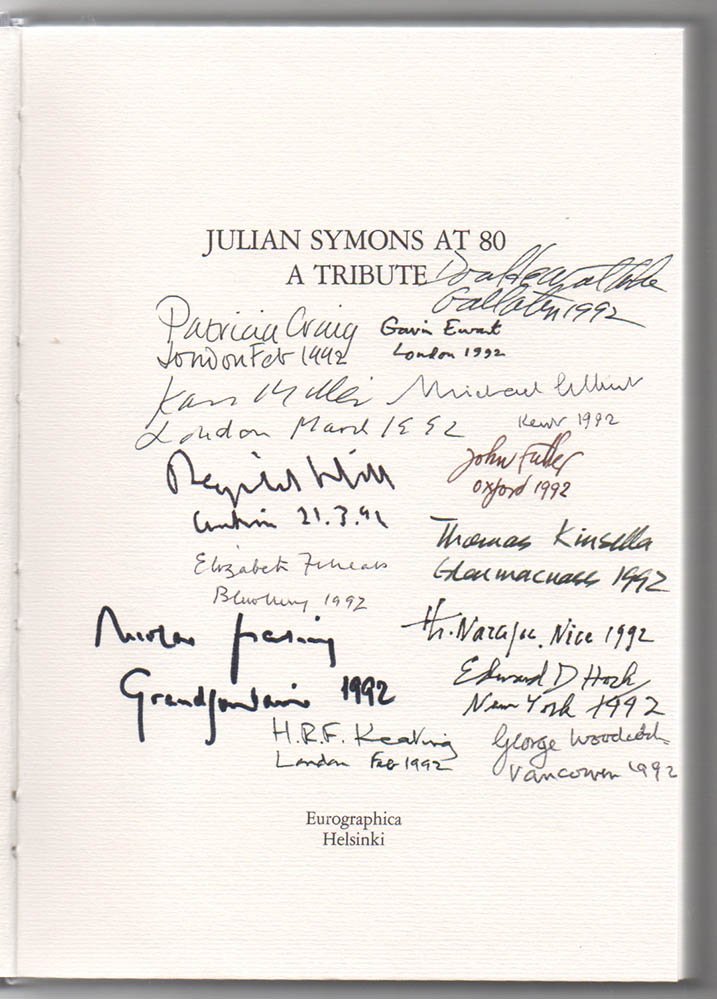 JULIAN SYMONS AT 80
A TRIBUTE
Gallatin 1992
Patricia Craig
London Feb 1992
Gavin Ewart
London 1992
Karl Miller
London March 1992
Michael Gilbert
Kent 1992
Reginald Hill
21.3.92
John Fuller
Oxford 1992
Elizabeth Ferrars
Blewbury 1992
Thomas Kinsella
1992
Nicolas Freeling
Grandfontaine 1992
Th. Narcejac, Nice 1992
Edward D Hoch
New York 1992
H.R.F. Keating
London Feb 1992
George Woodcock
Vancouver 1992
Eurographica
Helsinki